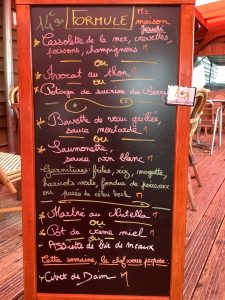 14,90 FORMULE M = maison
Jeudi
Cassolette de la mer, crevettes
poissons, champignons M
ou
Avocat au thon M
ou
Potage de sucrine du Berry
Bavette de veau grillée,
sauce moutarde M
ou
Saumonette,
sauce vin blanc M
Garnitures: frites, riz,
haricots verts, fondue de poireaux
ou purée de céleri
Marbré au Nutella M
ou
Pot de crème miel M
ou
Assiette de brie de meaux
Cette semaine, le chef vous propose
Civet de Daim M